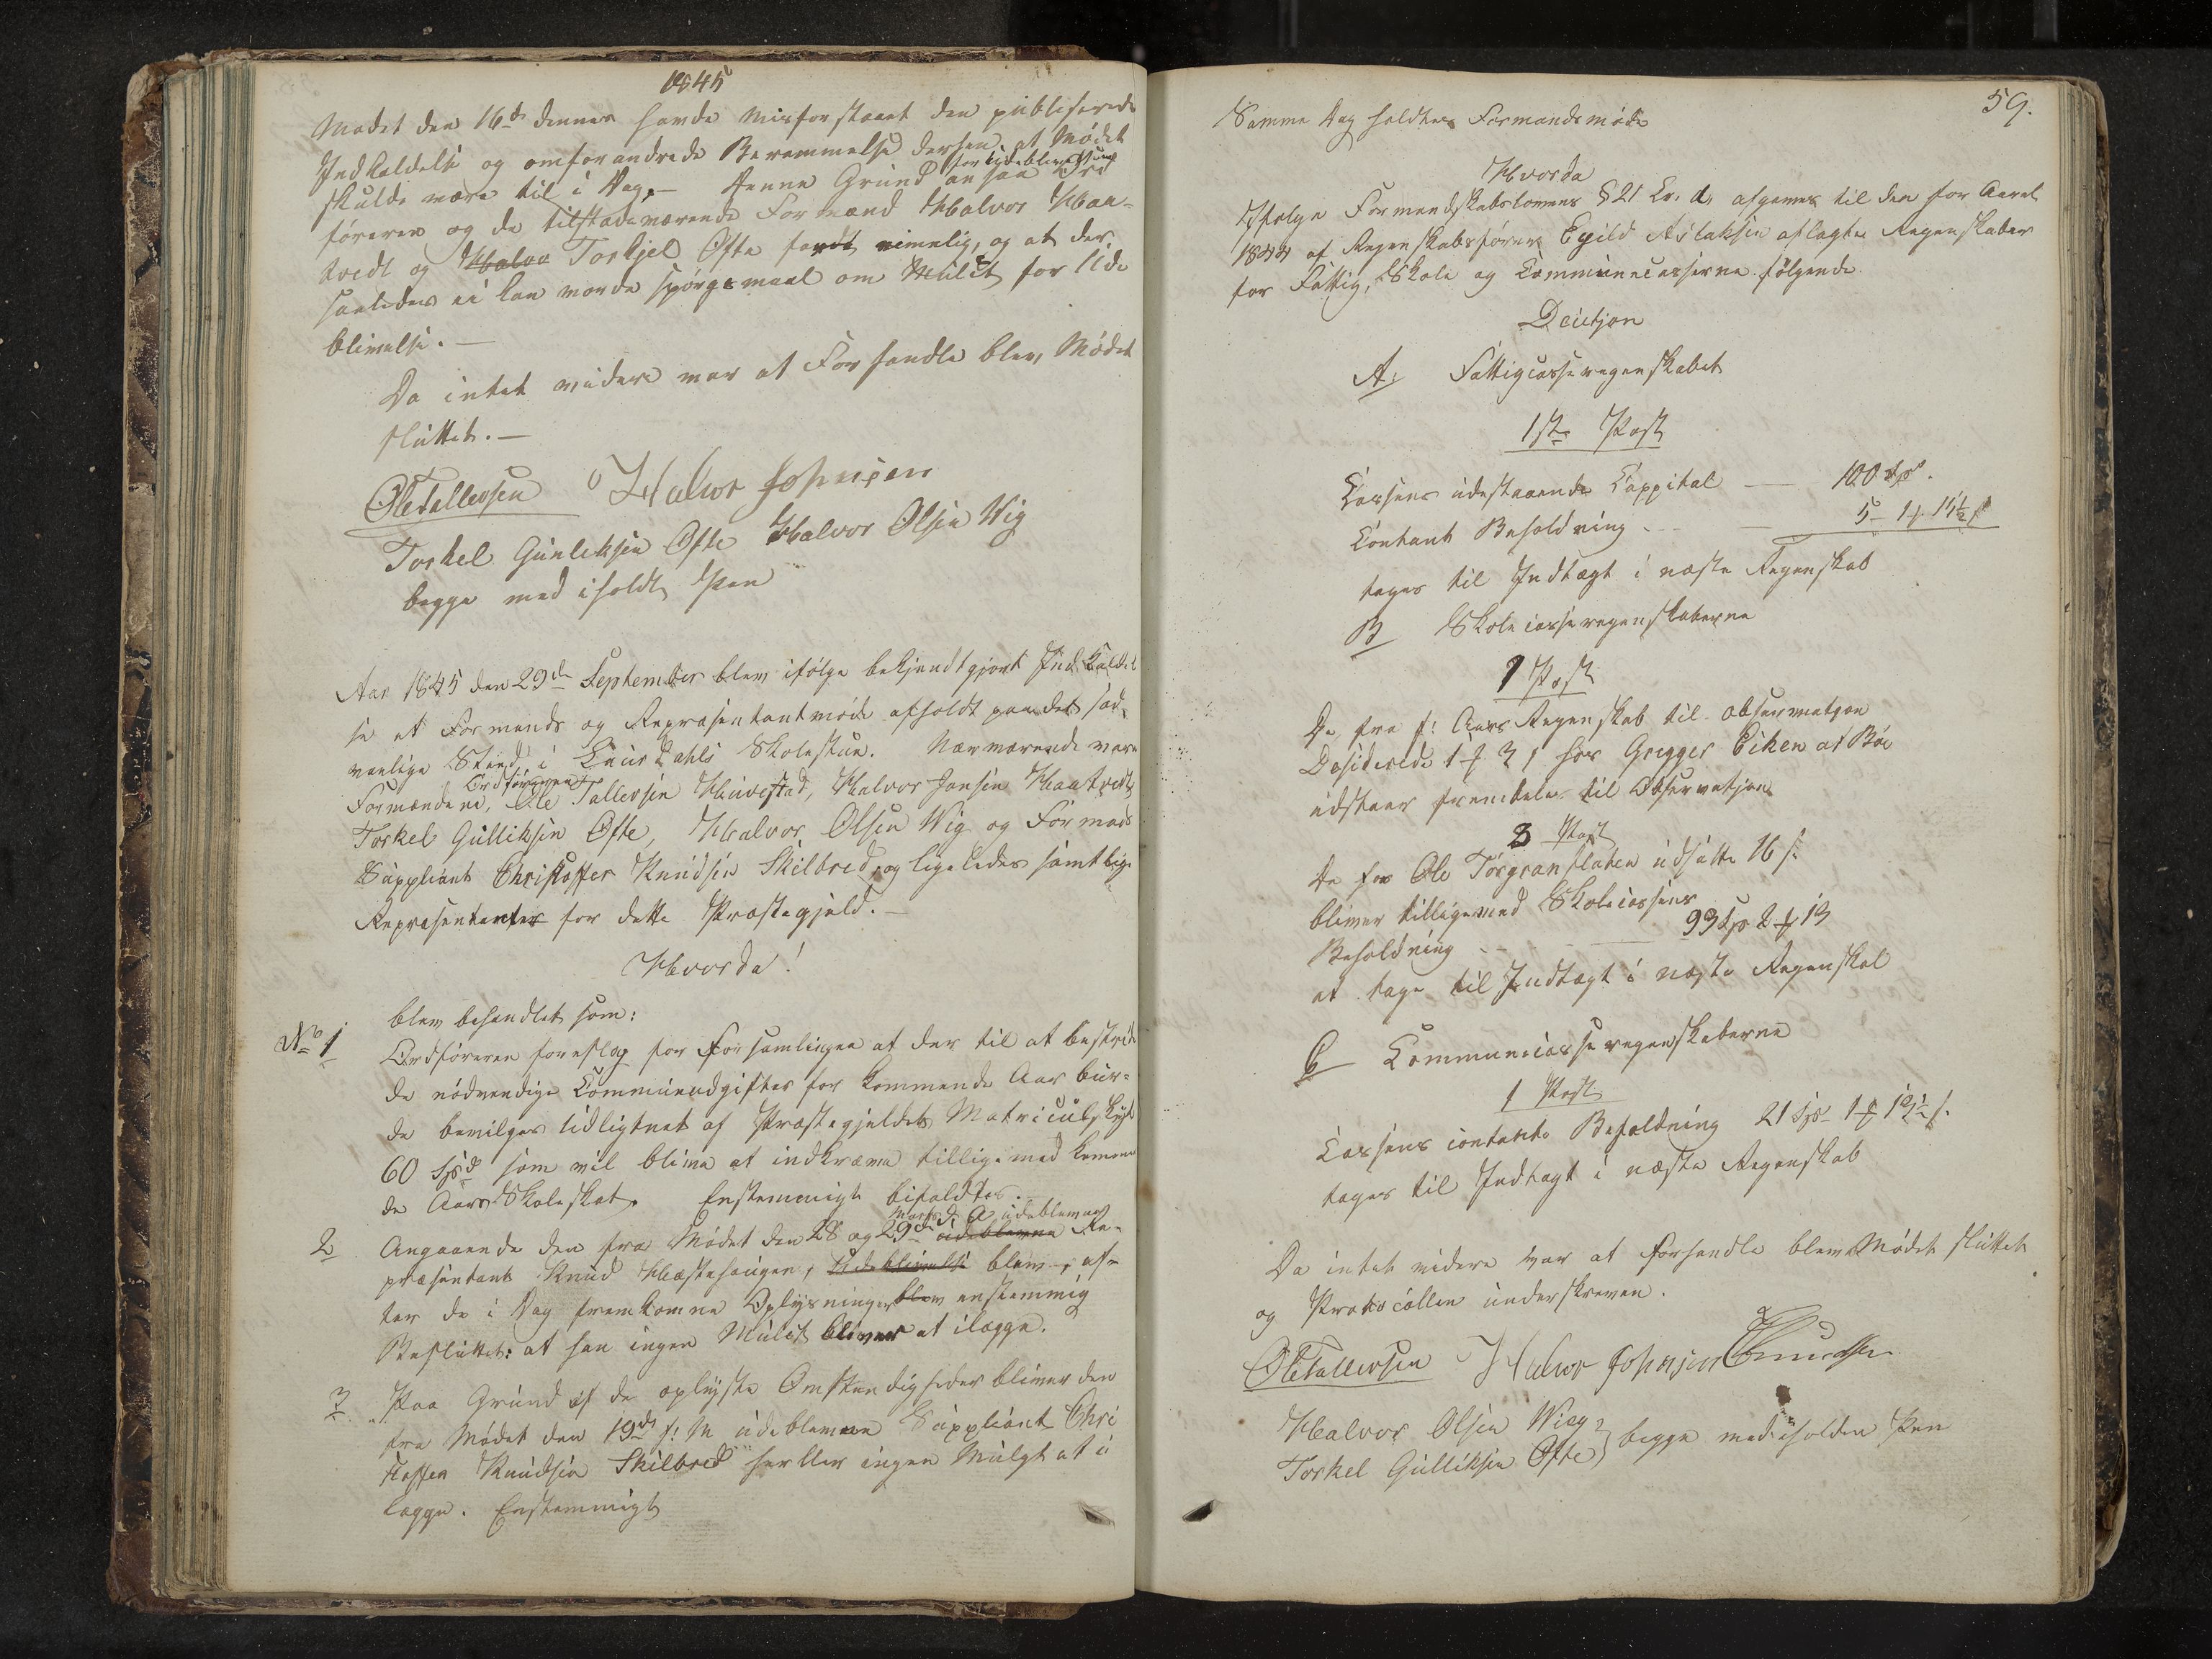 1845
Mødet den 16de dennes havde misforstaaet den publiserede
Indkaldelse og omforandrede Berammelse derhen, at Mødet
skulde være til i Dag. — Denne Grund for Udeblivelsen ansaa Ord
føreren og de tilstædeværende Formænd Halvor Haa-
tvedt og Halvor Torkjel Ofte fandt rimelig, og at der
saaledes ei kan worde spørgsmaal om Mulct for Ude
blivelse. —
Da intet videre var at Forhandle blev Mødet
sluttet. —
Ole Tallevsen Halvor Johnsen
Torkel Gunleksen Ofte Halvor Olsen Wig
begge med iholdt Pen
Aar 1845 den 29de September blev ifølge bekjendtgjort Indkaldel
se et Formands og Repræsentantmøde afholdt paa det sæd
vanlige Sted i Luurdahls Skolestue. Nærværende vare
Formændene, Ordføreren Ole Tallevsen Huvestad, Halvor Jansen Haatvedt,
Torkel Gulliksen Ofte, Halvor Olsen Wig og Formands
Suppliant Christoffer Knudsen Skilbred, og ligeledes samtlige
Repræsentanter for dette Præstegjeld. —
Hvorda!
blev behandlet som:
No 1 Ordføreren foreslog for Forsamlingen at der til at bestride
de nødvendige Communeudgifter for kommende Aar bur-
de bevilges Udlignet af Præstegjeldets Matriculskyld
60 Spd som vil blive at indkræve tilligemed kommen
de Aars Skoleskat. Enstemmigt bifaldtes.
2 Angaaende den fra Mødet den 28 og 29de Marts d. A. udeblevne udeblevne Re-
præsentant Knud Hæstehaugen, Udeblivelse blev, ef-
ter de i Dag fremkomne Oplysninger blev enstemmig
Besluttet: at han ingen Mulct bliver at ilægge.
3 Paa Grund af de oplyste Omstændigheder bliver den
fra Mødet den 19de f: M udeblevne Suppliant Chri
stoffer Knudsen Skilbred heller ingen Mulgt at i
lægge. Enstemmigt
59.
Samme Dag holdtes Formandsmøde
Hvorda
Ifølge Formandskabslovens § 21 Lr. d, afgaves til den for Aaret
1844 af Regenskabsfører Egild Aslaksen aflagte Regenskaber
for Fattig, Skole og Communecasserne følgende
Decitjon
A: Fattigcasseregenskabet
1ste Post
Cassens udestaaende Cappital — 100 Spd.
Contant Beholdning — 5 - 1 ƒ 15½ s
tages til Indtægt i næste Regenskab
B Skolecasseregenskaberne
1 Post
De fra f: Aars Regenskab til observatjon
Desiderede 1 ƒ 3 s hos Gregger Eiken af Bøe
udstaar fremdeles til Observatjon
3 Post
De for Ole Torgranflaten udsatte 16 s.
bliver tilligemed Skolecassens
Beholdning — 93 Spd 2 ƒ 13
at tage til Indtægt i næste Regenskab
C Communecasseregenskaberne
1 Post
Cassens contante Beholdning 21 Spd 1 ƒ 13½ s.
tages til Indtægt i næste Regenskab
Da intet videre var at forhandle blev Mødet sluttet
og Protocollen underskreven.
Ole Tallevsen Halvor Johnsen CKnudsen
Halvor Olsen Wieg
Torkel Gulliksen Ofte } begge med iholden Pen